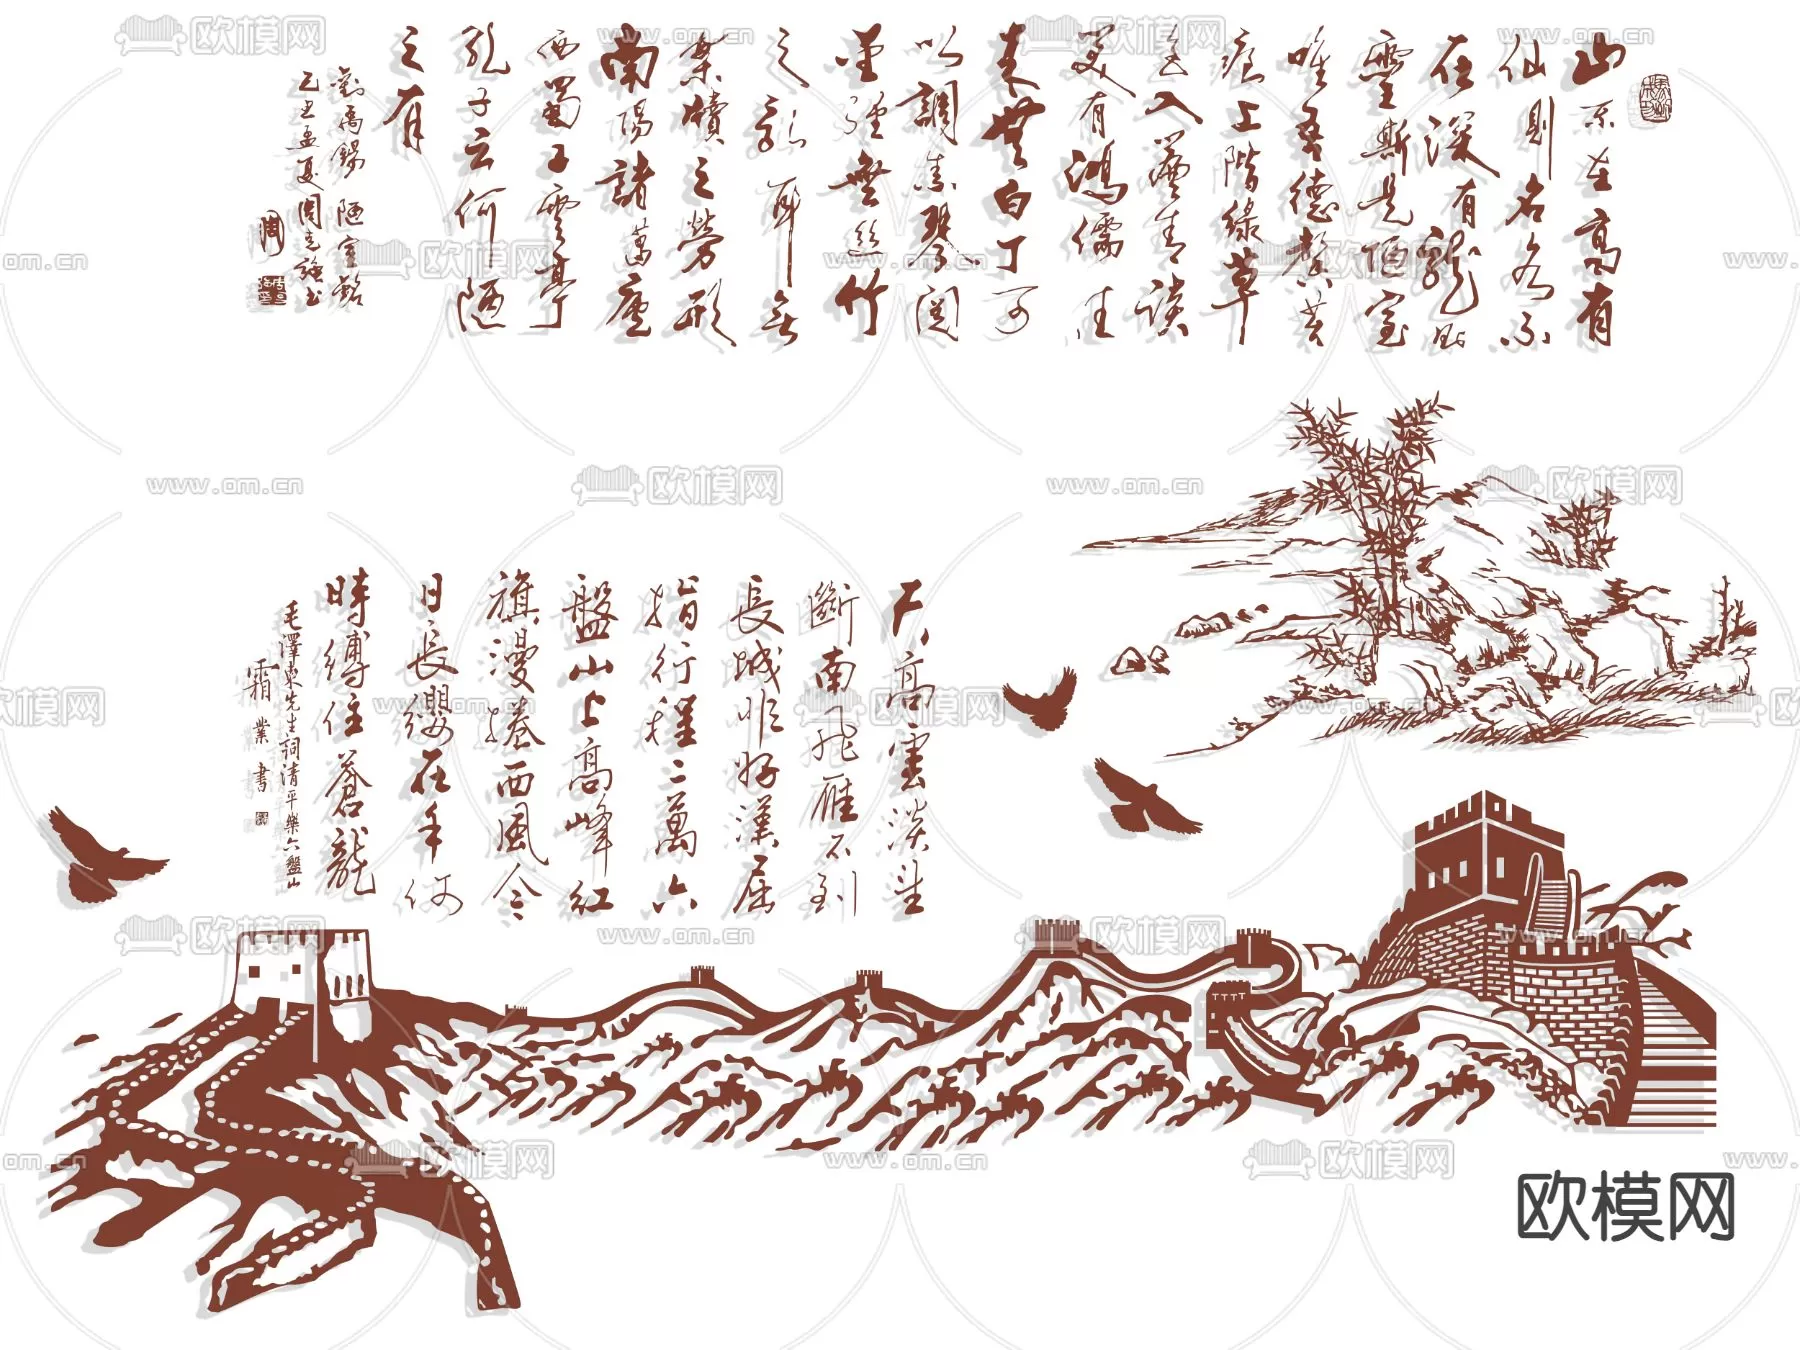 山不在高有
仙則名水不
在深有龍則
靈斯是陋室
唯吾德馨苔
痕上階綠草
色入簾青談
笑有鴻儒往
來無白丁可
以調素琴閱
金經無絲竹
之亂耳無
案牘之勞形
南陽諸葛廬
西蜀子雲亭
孔子云何陋
之有
劉禹錫 陋室銘
乙丑孟夏周
天高雲淡望
斷南飛雁不到
長城非好漢屈
指行程二萬六
盤山上高峰紅
旗漫捲西風今
日長纓在手何
時縛住蒼龍
毛澤東先生詞清平樂六盤山
霜業書
欧模网
www.om.cn